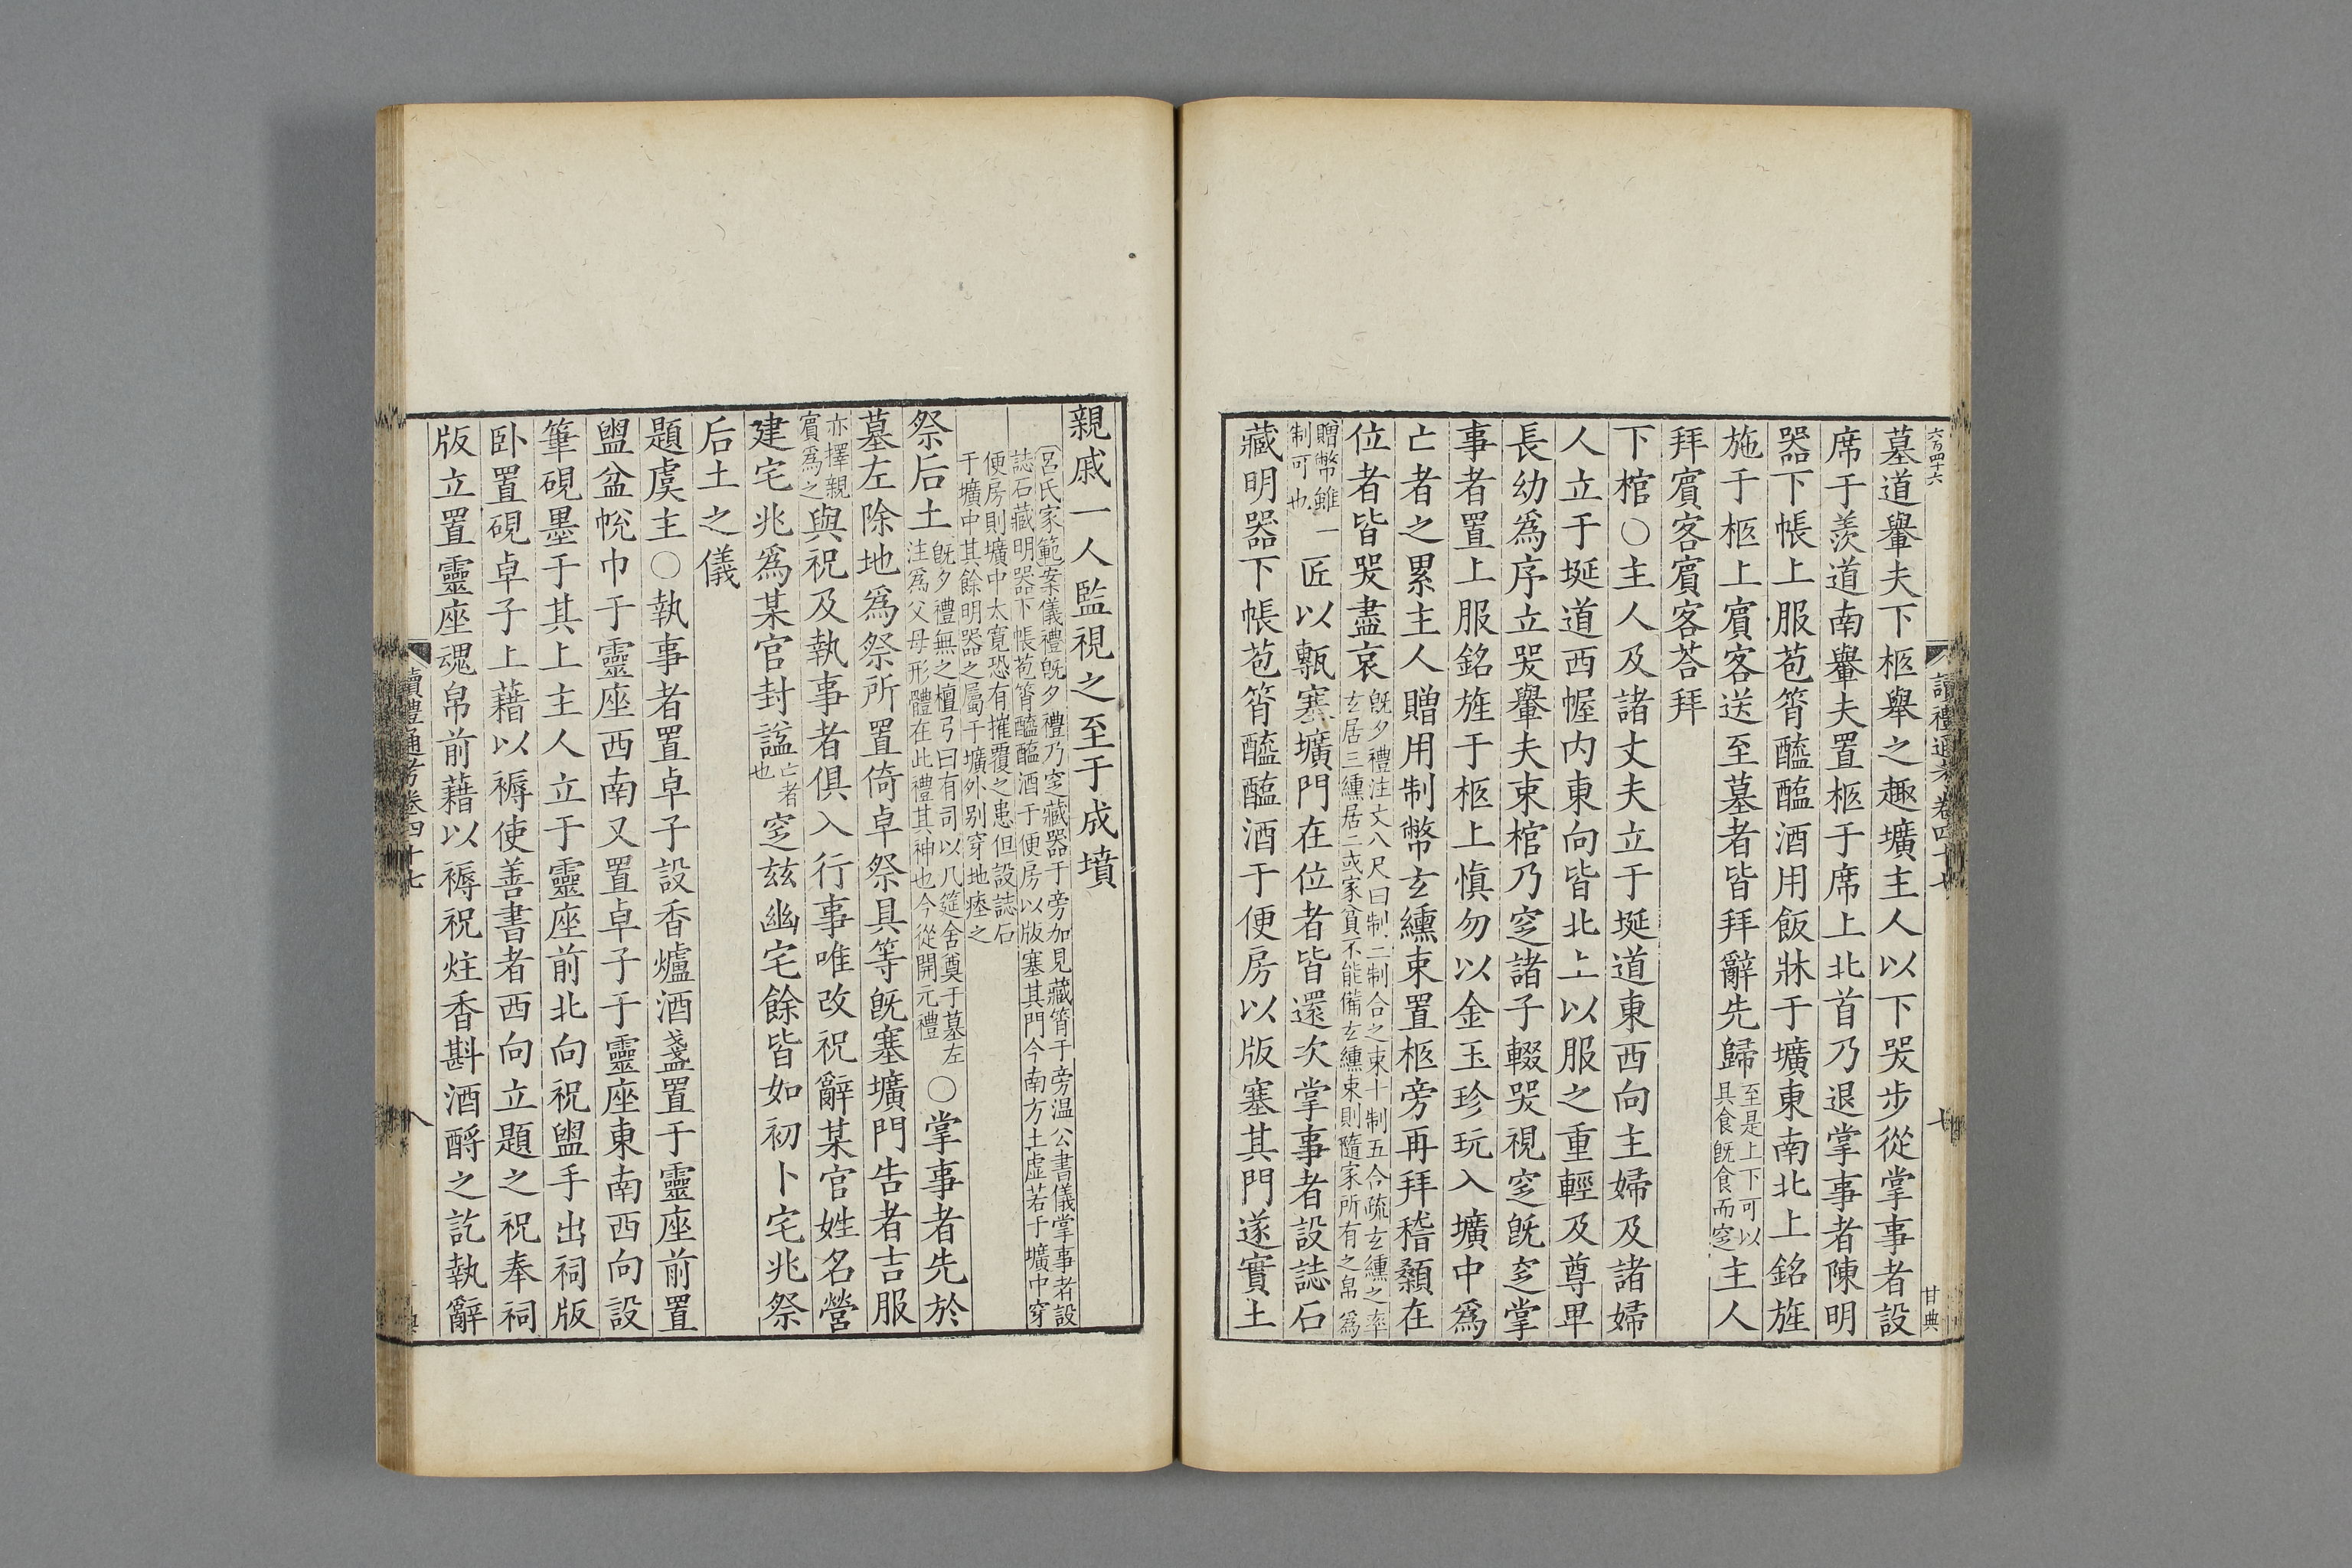 六百四十六
讀禮通考卷四十七
七
甘典
墓道轝夫下柩舉之趣壙主人以下哭步從掌事者設
席于羨道南轝夫置柩于席上北首乃退掌事者陳明
器下帳上服苞筲醯醢酒用飯牀于壙東南北上銘旌
施于柩上賓客送至墓者皆拜辭先歸至是上下可以具食旣食而窆主人
拜賓客賓客荅拜
下棺○主人及諸丈夫立于埏道東西向主婦及諸婦
人立于埏道西幄内東向皆北上以服之重輕及尊卑
長幼爲序立哭轝夫束棺乃窆諸子輟哭視窆旣窆掌
事者置上服銘旌于柩上愼勿以金玉珍玩入壙中爲
亡者之累主人贈用制幣玄纁束置柩旁再拜稽顙在
位者皆哭盡哀旣夕禮注丈八尺曰制二制合之束十制五合疏玄纁之率玄居三纁居二或家貧不能備玄纁束則隨家所有之帛爲
贈幣雖一制可也匠以甎塞壙門在位者皆還次掌事者設誌石
藏明器下帳苞筲醯醢酒于便房以版塞其門遂實土
親戚一人監視之至于成墳
呂氏家範案儀禮旣夕禮乃窆藏器于旁加見藏筲于旁温公書儀掌事者設
誌石藏明器下帳苞筲醯醢酒于便房以版塞其門今南方土虛若于壙中穿
便房則壙中太寛恐有摧覆之患但設誌石
于壙中其餘明器之屬于壙外别穿地瘞之
祭后土旣夕禮無之檀弓曰有司以几筵舍奠于墓左注爲父母形體在此禮其神也今從開元禮○掌事者先於
墓左除地爲祭所置倚卓祭具等旣塞壙門告者吉服
亦擇親賓爲之與祝及執事者俱入行事唯改祝辭某官姓名營
建宅兆爲某官封諡亡者也窆兹幽宅餘皆如初卜宅兆祭
后土之儀
題虞主○執事者置卓子設香爐酒盞置于靈座前置
盥盆帨巾于靈座西南又置卓子于靈座東南西向設
筆硯墨于其上主人立于靈座前北向祝盥手出祠版
卧置硯卓子上藉以褥使善書者西向立題之祝奉祠
版立置靈座魂帛前藉以褥祝炷香斟酒酹之訖執辭
讀禮通考卷四十七
八